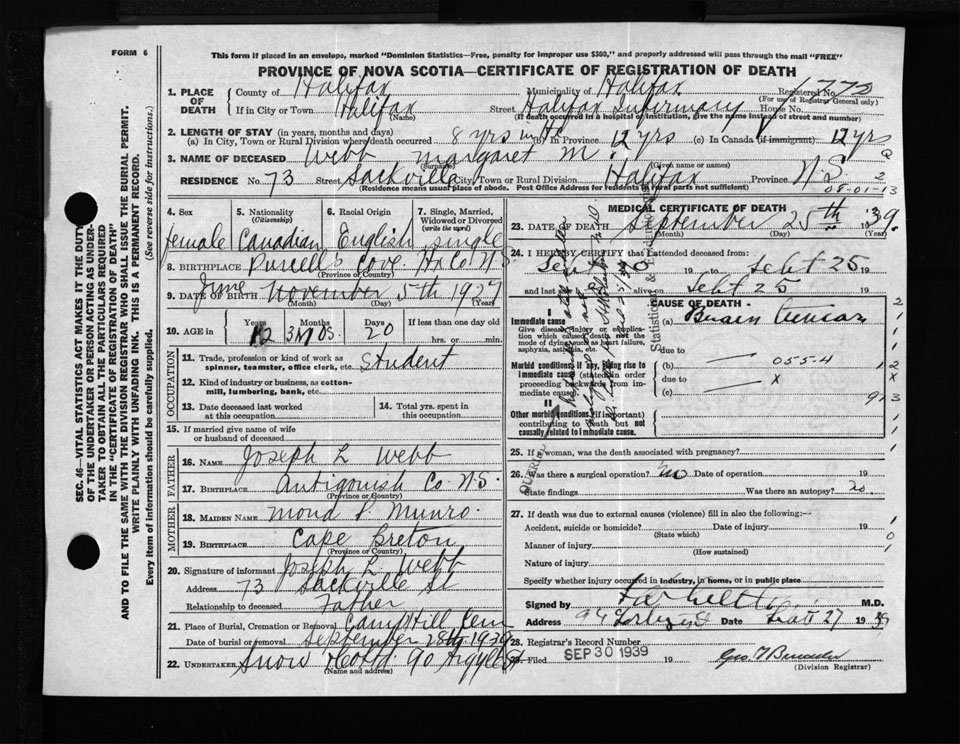 FORM 6
This form if placed in an envelope, marked "Dominion Statistics—Free, penalty for improper use $300," and properly addressed will pass through the mail "FREE"
PROVINCE OF NOVA SCOTIA—CERTIFICATE OF REGISTRATION OF DEATH
1. PLACE OF DEATH
County of Halifax Municipality of Halifax Registered No.
(For use of Registrar General only)
If in City or Town Halifax Street Halifax Infirmary House No.
(Name) (If death occurred in a hospital or institution, give the name instead of street and number)
2. LENGTH OF STAY (in years, months and days)
(a) In City, Town or Rural Division where death occurred 8 yrs (b) In Province 12 yrs (c) In Canada (if immigrant) 12 yrs
3. NAME OF DECEASED Webb Margaret M.
(Surname) (Given name or names)
RESIDENCE No. 73 Street Sackville City, Town or Rural Division Halifax Province N.S.
(Residence means usual place of abode. Post Office Address for residents in rural parts not sufficient)
05-01-13
4. Sex 5. Nationality (Citizenship) 6. Racial Origin 7. Single, Married, Widowed or Divorced (write the word)
female Canadian English single
8. BIRTHPLACE Purcell's Cove Hx Co N.S.
(Province or Country)
June
9. DATE OF BIRTH November 5th 1927
(Month) (Day) (Year)
10. AGE in Years Months Days If less than one day
12 3 mos. 20 hrs. or min.
OCCUPATION
11. Trade, profession or kind of work as spinner, teamster, office clerk, etc. Student
12. Kind of industry or business, as cotton-mill, lumbering, bank, etc.
13. Date deceased last worked at this occupation
14. Total yrs. spent in this occupation
15. If married give name of wife or husband of deceased
FATHER
16. NAME Joseph L Webb
17. BIRTHPLACE Antigonish Co. N.S.
(Province or Country)
MOTHER
18. MAIDEN NAME Munro.
19. BIRTHPLACE Cape Breton
(Province or Country)
20. Signature of informant Joseph L. Webb
Address 73 Sackville St
Relationship to deceased Father
21. Place of Burial, Cremation or Removal Camp Hill Cem
Date of burial or removal September 28th 1939
22. UNDERTAKER Snow & Co Ltd. 90 Argyle St
(Name and address)
MEDICAL CERTIFICATE OF DEATH
23. DATE OF DEATH September 25th 1939.
(Month) (Day) (Year)
24. I HEREBY CERTIFY that I attended deceased from:
Sept 19 to Sept 25 19
and last saw alive on Sept 25 19
CAUSE OF DEATH
I
Immediate cause (a) Brain
Give disease, injury or complication which caused death, not the mode of dying such as heart failure, asphyxia, asthenia, etc.
due to
Morbid conditions, if any, giving rise to immediate cause (stated in order proceeding backwards from immediate cause)
(b) 055-4
due to x
(c)
II
Other morbid conditions (if important) contributing to death but not causally related to immediate cause
25. If a woman, was the death associated with pregnancy?
26. Was there a surgical operation? no Date of operation 19
State findings Was there an autopsy? no.
27. If death was due to external causes (violence) fill in also the following:—
Accident, suicide or homicide? Date of injury 19
(State which)
Manner of injury
(How sustained)
Nature of injury
Specify whether injury occurred in industry, in home, or in public place
Signed by M.D.
Address Date Sept 27 1939
28. Registrar's Record Number
29. Filed SEP 30 1939 19
(Division Registrar)
SEC. 46—VITAL STATISTICS ACT MAKES IT THE DUTY OF THE UNDERTAKER OR PERSON ACTING AS UNDERTAKER TO OBTAIN ALL THE PARTICULARS REQUIRED IN THE "CERTIFICATE OF REGISTRATION OF DEATH" AND TO FILE THE SAME WITH THE DIVISION REGISTRAR WHO SHALL ISSUE THE BURIAL PERMIT.
WRITE PLAINLY WITH UNFADING INK. THIS IS A PERMANENT RECORD.
Every item of information should be carefully supplied. (See reverse side for instructions.)